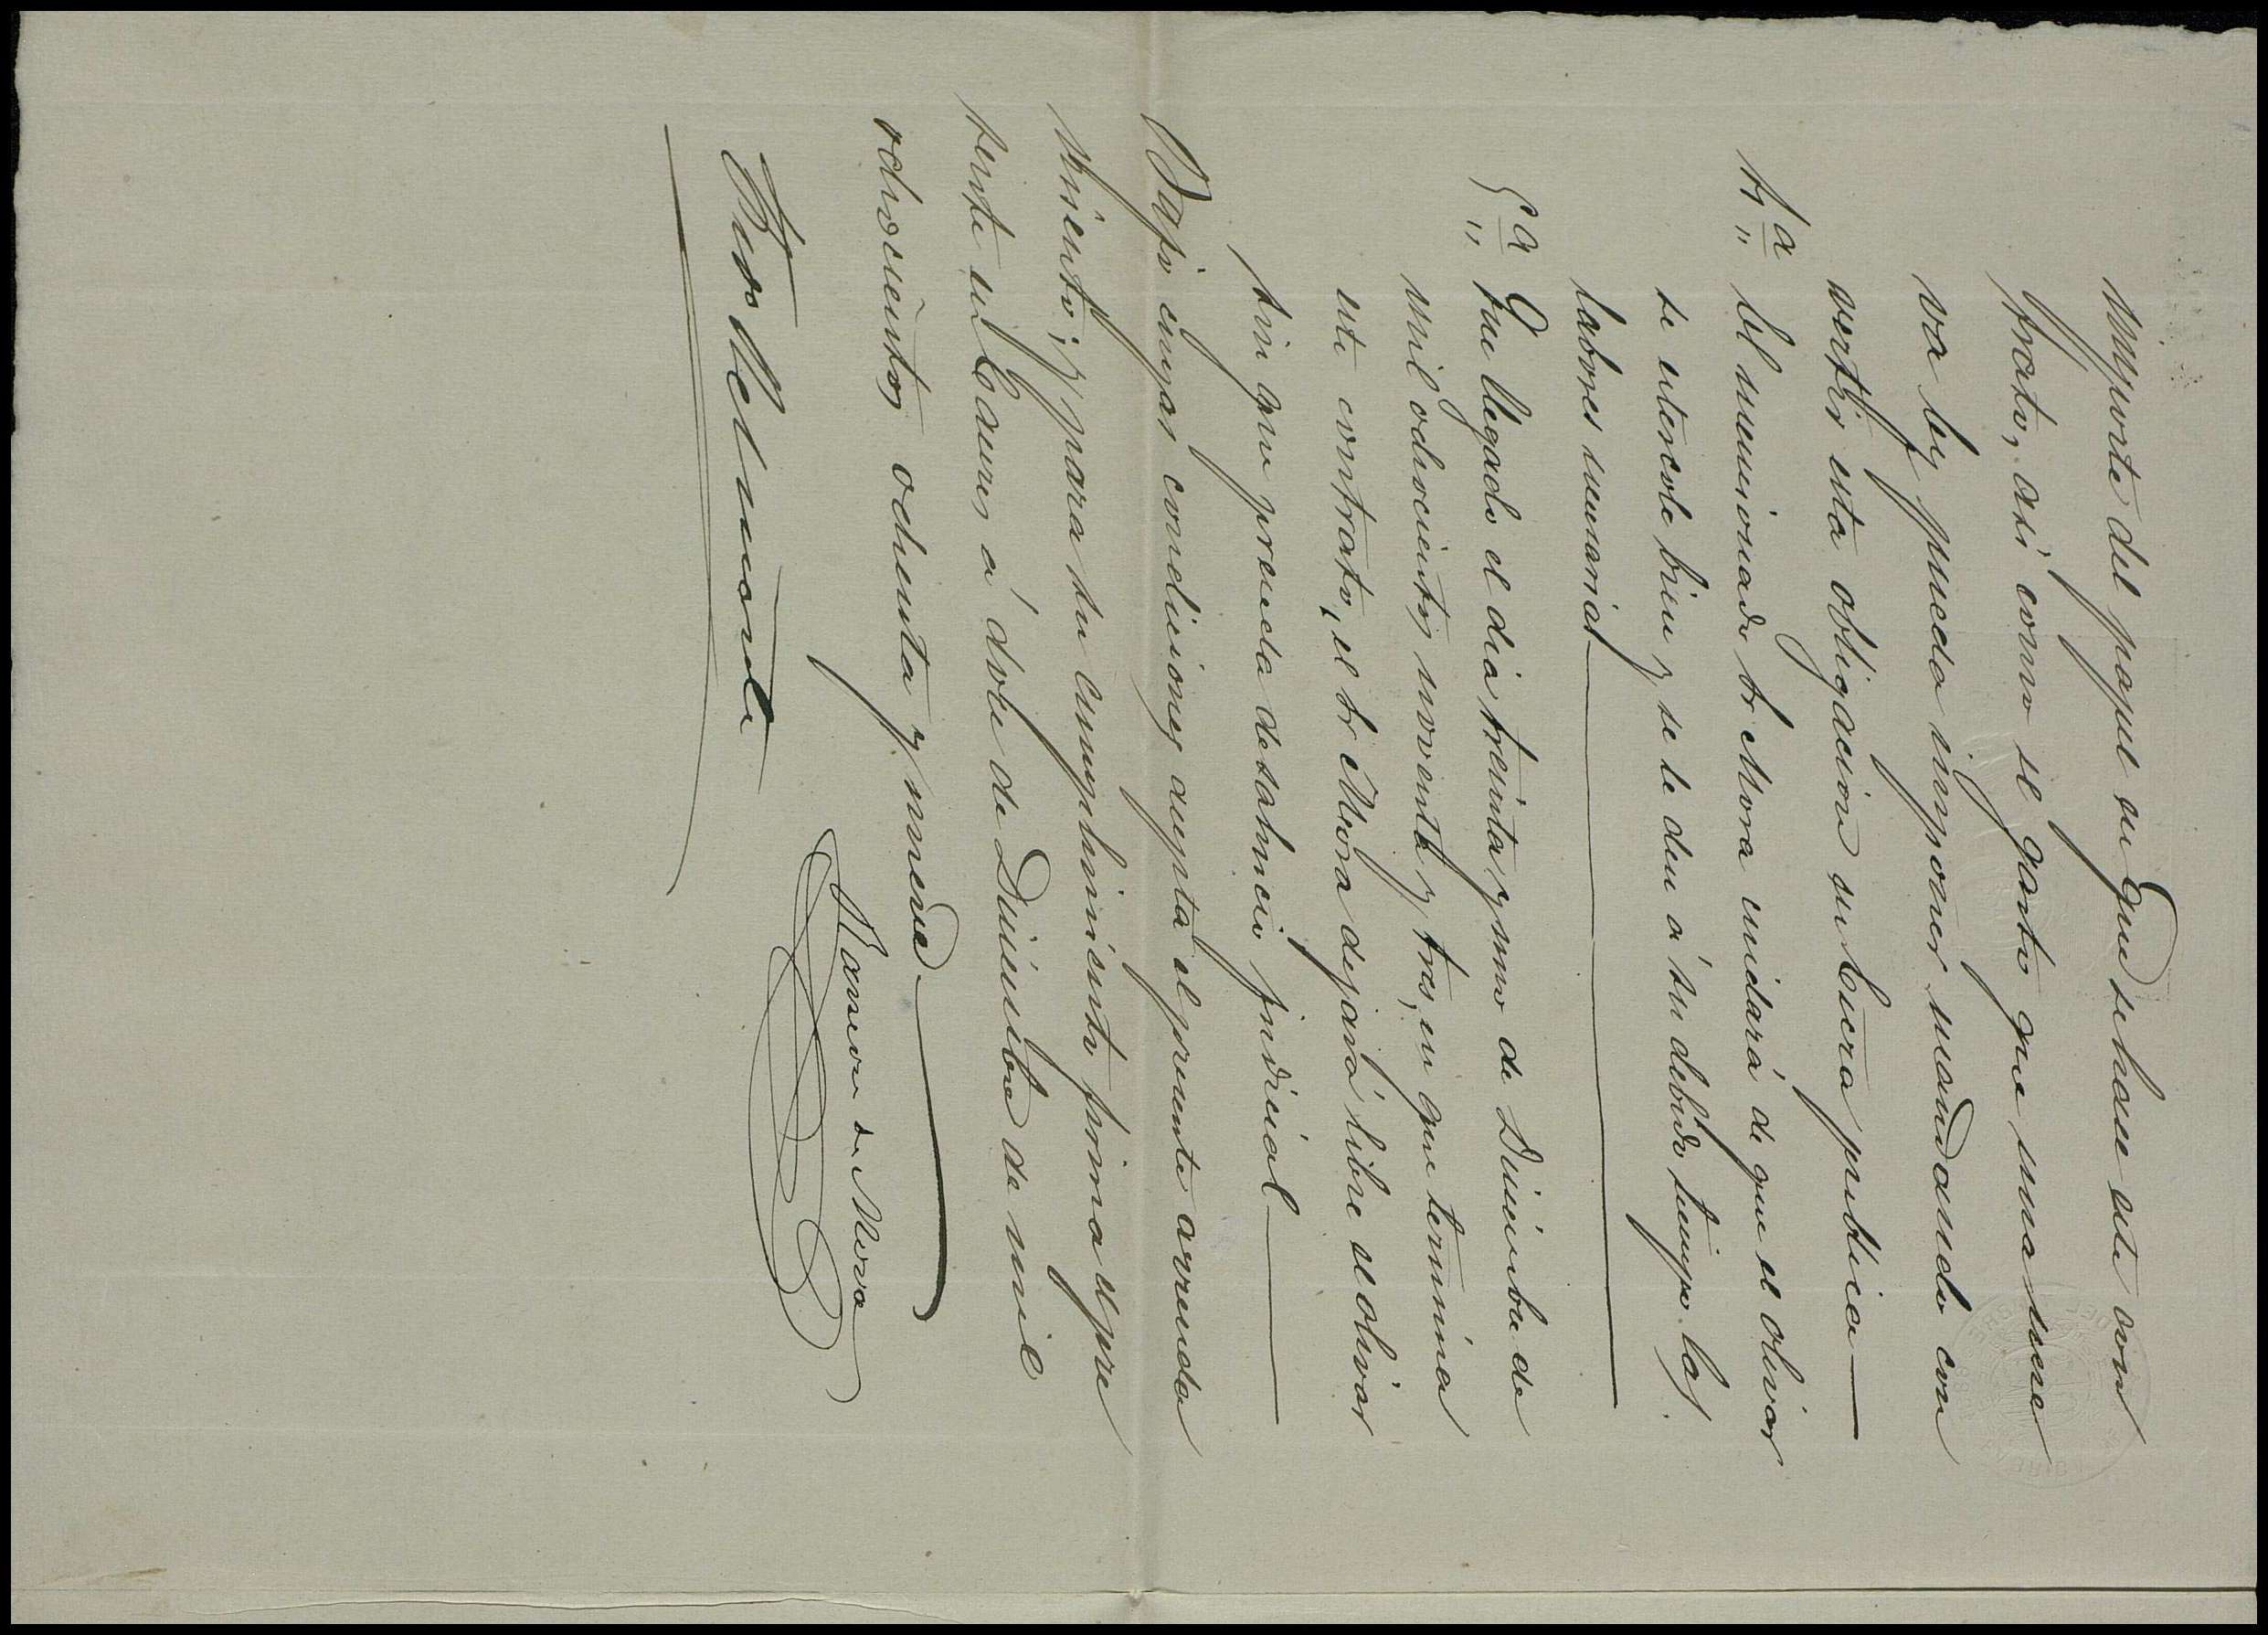 importe del papel en que se hace este con
trato, así como el gasto que una nue
va ley pueda imponer mandando con
vertir esta obligacion en Escra publica
4ª„ El mencionado Sr Mora cuidará de que el olivar
se estercole bien y se le den á su debido tiempo las
labores necesarias
5ª„ Que llegado el dia treinta y uno de Diciembre de
mil ochocientos noventa y tres, en que termina
este contrato, el Sr Mora dejará libre el olivar
sin que preceda desahucio judicial
Bajo cuyas condiciones acepta el presente arrenda
miento; y para su cumplimiento firma el pre
sente en Cazres á doce de Diciembre de mil
ochocientos ochenta y nueve
Ramon de Mora